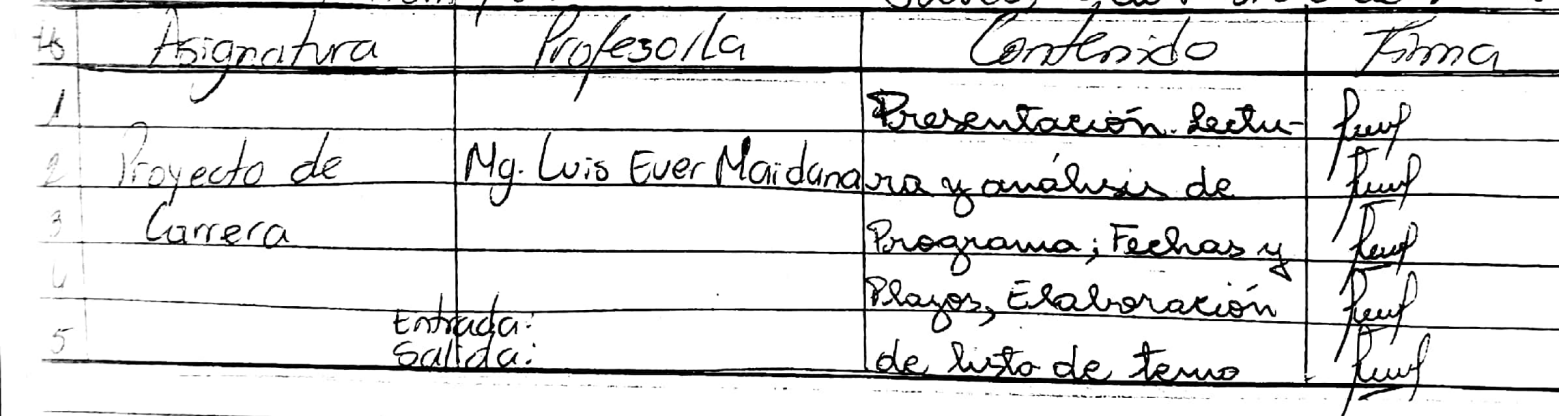 Hs Asignatura Profesor/a Contenido Firma
1 Presentación. Lectu-
2 Proyecto de Mg. Luis Ever Maidana ra y análisis de
3 Carrera Programa; Fechas y
4 Plazos, Elaboración
Entrada:
5 Salida: de lista de tema